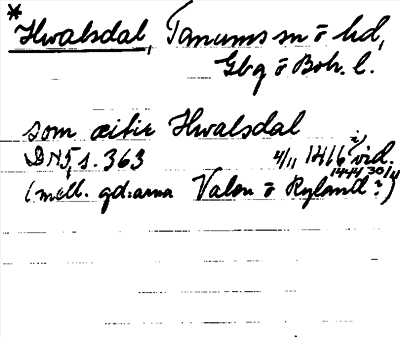 * Hwalsdal, Tanums sn o hd,
Gbg o Boh. l.
som æitir Hwalsdal
DN 5, s. 363 4/11 1416 vid.
1444 30/4
(mell. gd:arna Valen o Ryland?)